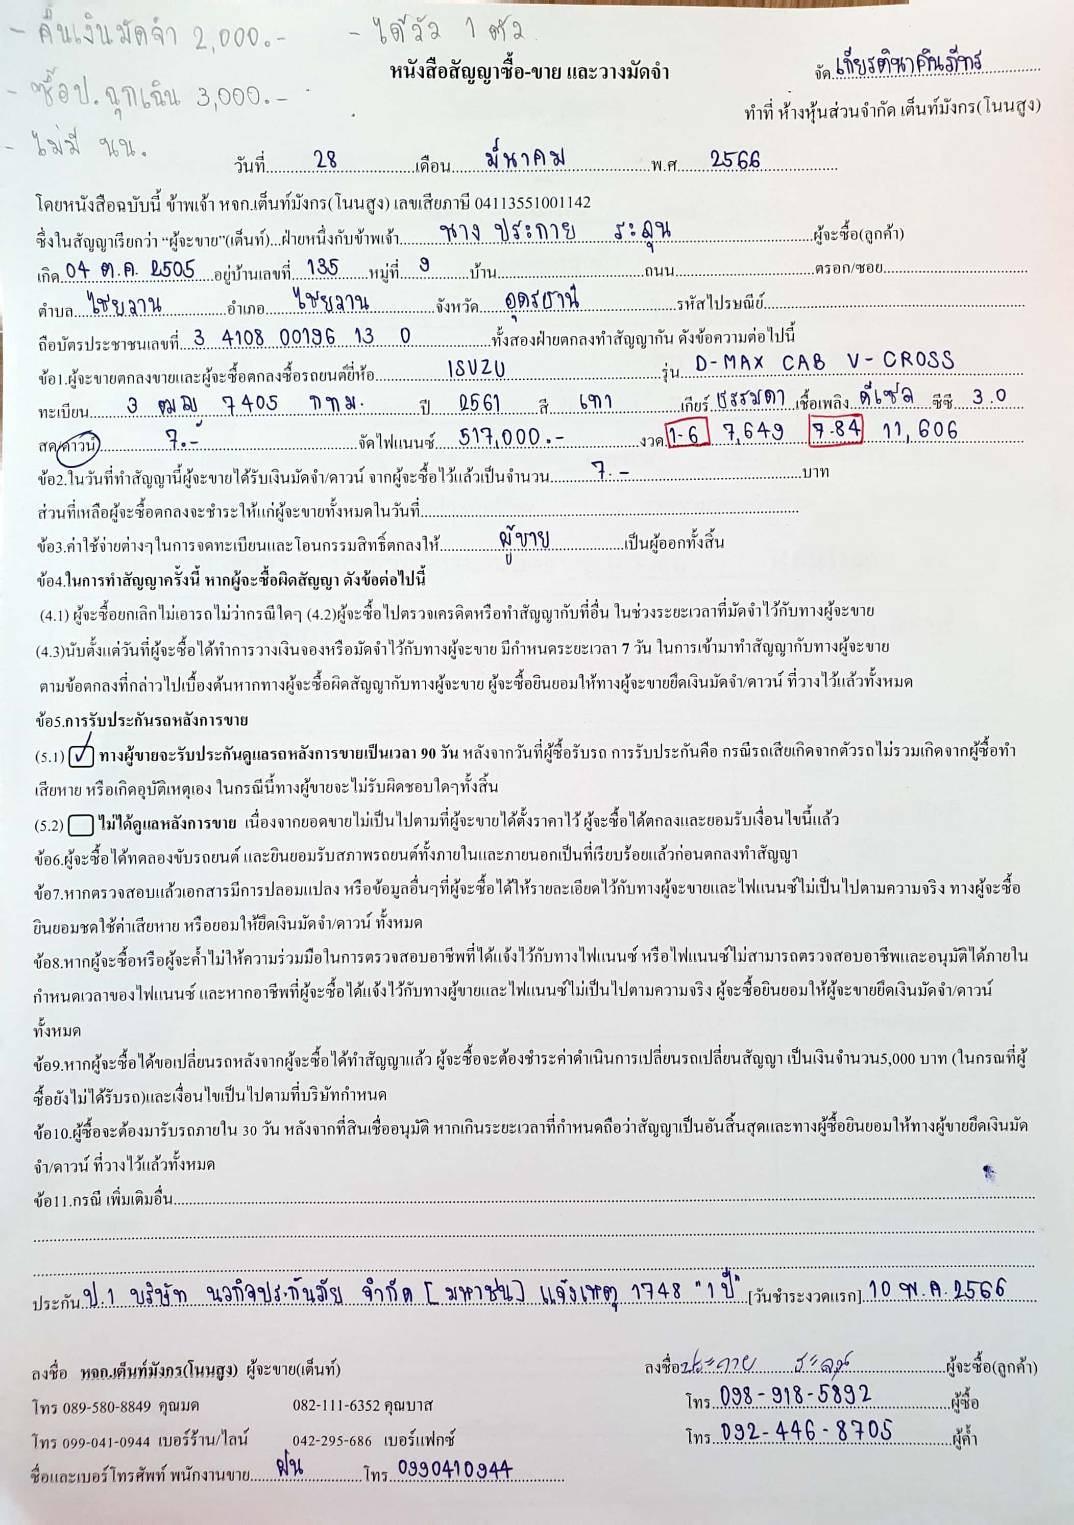 - คืนเงินมัดจำ 2,000.-
- ได้วัว 1 ตัว
- ซื้อป.ฉุกเฉิน 3,000.-
- ไม่มี นน.
หนังสือสัญญาซื้อ-ขาย และวางมัดจำ
จัด เกียรตินาคินภัทร
ทำที่ ห้างหุ้นส่วนจำกัด เต็นท์มังกร(โนนสูง)
วันที่ 28 เดือน มีนาคม พ.ศ. 2566
โดยหนังสือฉบับนี้ ข้าพเจ้า หจก.เต็นท์มังกร(โนนสูง) เลขเสียภาษี 04113551001142
ซึ่งในสัญญาเรียกว่า “ผู้จะขาย”(เต็นท์)...ฝ่ายหนึ่งกับข้าพเจ้า นาง ประกาย ระลุน ผู้จะซื้อ(ลูกค้า)
เกิด 04 ต.ค. 2505 อยู่บ้านเลขที่ 135 หมู่ที่ 9 บ้าน ถนน ตรอก/ซอย
ตำบล ไชยวาน อำเภอ ไชยวาน จังหวัด อุดรธานี รหัสไปรษณีย์
ถือบัตรประชาชนเลขที่ 3 4108 00196 13 0 ทั้งสองฝ่ายตกลงทำสัญญากัน ดังข้อความต่อไปนี้
ข้อ1.ผู้จะขายตกลงขายและผู้จะซื้อตกลงซื้อรถยนต์ยี่ห้อ ISUZU รุ่น D-MAX CAB V-CROSS
ทะเบียน 3 ฒญ 7405 กทม. ปี 2561 สี เทา เกียร์ ธรรมดา เชื้อเพลิง ดีเซล ซีซี 3.0
สด/ดาวน์ 7.- จัดไฟแนนซ์ 517,000.- งวด 1-6 7,649 7-84 11,606
ข้อ2.ในวันที่ทำสัญญานี้ผู้จะขายได้รับเงินมัดจำ/ดาวน์ จากผู้จะซื้อไว้แล้วเป็นจำนวน 7.- บาท
ส่วนที่เหลือผู้จะซื้อตกลงจะชำระให้แก่ผู้จะขายทั้งหมดในวันที่
ข้อ3.ค่าใช้จ่ายต่างๆในการจดทะเบียนและโอนกรรมสิทธิ์ตกลงให้ ผู้ขาย เป็นผู้ออกทั้งสิ้น
ข้อ4.ในการทำสัญญาครั้งนี้ หากผู้จะซื้อผิดสัญญา ดังข้อต่อไปนี้
(4.1) ผู้จะซื้อยกเลิกไม่เอารถไม่ว่ากรณีใดๆ (4.2)ผู้จะซื้อไปตรวจเครดิตหรือทำสัญญากับที่อื่น ในช่วงระยะเวลาที่มัดจำไว้กับทางผู้จะขาย
(4.3)นับตั้งแต่วันที่ผู้จะซื้อได้ทำการวางเงินจองหรือมัดจำไว้กับทางผู้จะขาย มีกำหนดระยะเวลา 7 วัน ในการเข้ามาทำสัญญากับทางผู้จะขาย
ตามข้อตกลงที่กล่าวไปเบื้องต้นหากทางผู้จะซื้อผิดสัญญากับทางผู้จะขาย ผู้จะซื้อยินยอมให้ทางผู้จะขายยึดเงินมัดจำ/ดาวน์ ที่วางไว้แล้วทั้งหมด
ข้อ5.การรับประกันรถหลังการขาย
(5.1) ✓ ทางผู้ขายจะรับประกันดูแลรถหลังการขายเป็นเวลา 90 วัน หลังจากวันที่ผู้ซื้อรับรถ การรับประกันคือ กรณีรถเสียเกิดจากตัวรถไม่รวมเกิดจากผู้ซื้อทำ
เสียหาย หรือเกิดอุบัติเหตุเอง ในกรณีนี้ทางผู้ขายจะไม่รับผิดชอบใดๆทั้งสิ้น
(5.2) ไม่ได้ดูแลหลังการขาย เนื่องจากยอดขายไม่เป็นไปตามที่ผู้จะขายได้ตั้งราคาไว้ ผู้จะซื้อได้ตกลงและยอมรับเงื่อนไขนี้แล้ว
ข้อ6.ผู้จะซื้อได้ทดลองขับรถยนต์ และยินยอมรับสภาพรถยนต์ทั้งภายในและภายนอกเป็นที่เรียบร้อยแล้วก่อนตกลงทำสัญญา
ข้อ7.หากตรวจสอบแล้วเอกสารมีการปลอมแปลง หรือข้อมูลอื่นๆที่ผู้จะซื้อได้ให้รายละเอียดไว้กับทางผู้จะขายและไฟแนนซ์ไม่เป็นไปตามความจริง ทางผู้จะซื้อ
ยินยอมชดใช้ค่าเสียหาย หรือยอมให้ยึดเงินมัดจำ/ดาวน์ ทั้งหมด
ข้อ8.หากผู้จะซื้อหรือผู้จะค้ำไม่ให้ความร่วมมือในการตรวจสอบอาชีพที่ได้แจ้งไว้กับทางไฟแนนซ์ หรือไฟแนนซ์ไม่สามารถตรวจสอบอาชีพและอนุมัติได้ภายใน
กำหนดเวลาของไฟแนนซ์ และหากอาชีพที่ผู้จะซื้อได้แจ้งไว้กับทางผู้ขายและไฟแนนซ์ไม่เป็นไปตามความจริง ผู้จะซื้อยินยอมให้ผู้จะขายยึดเงินมัดจำ/ดาวน์
ทั้งหมด
ข้อ9.หากผู้จะซื้อได้ขอเปลี่ยนรถหลังจากผู้จะซื้อได้ทำสัญญาแล้ว ผู้จะซื้อจะต้องชำระค่าดำเนินการเปลี่ยนรถเปลี่ยนสัญญา เป็นเงินจำนวน5,000 บาท (ในกรณที่ผู้
ซื้อยังไม่ได้รับรถ)และเงื่อนไขเป็นไปตามที่บริษัทกำหนด
ข้อ10.ผู้ซื้อจะต้องมารับรถภายใน 30 วัน หลังจากที่สินเชื่ออนุมัติ หากเกินระยะเวลาที่กำหนดถือว่าสัญญาเป็นอันสิ้นสุดและทางผู้ซื้อยินยอมให้ทางผู้ขายยึดเงินมัด
จำ/ดาวน์ ที่วางไว้แล้วทั้งหมด
ข้อ11.กรณี เพิ่มเติมอื่น
ประกัน ป.1 บริษัท นวกิจประกันภัย จำกัด [มหาชน] แจ้งเหตุ 1748 "1 ปี" [วันชำระงวดแรก] 10 พ.ค. 2566
ลงชื่อ หจก.เต็นท์มังกร(โนนสูง) ผู้จะขาย(เต็นท์)
ลงชื่อ ประกาย ระลุน ผู้จะซื้อ(ลูกค้า)
โทร 089-580-8849 คุณมด 082-111-6352 คุณบาส
โทร 098-918-5892 ผู้ซื้อ
โทร 099-041-0944 เบอร์ร้าน/ไลน์ 042-295-686 เบอร์แฟกซ์
โทร 092-446-8705 ผู้ค้ำ
ชื่อและเบอร์โทรศัพท์ พนักงานขาย ฝน โทร 0990410944